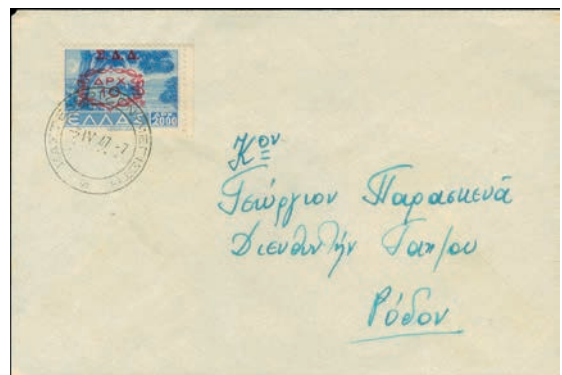 Σ.Δ.Δ.
ΔΡΧ
10
ΕΛΛΑΣ 2000
IV 47 -7
Κον
Γεώργιον Παρασκευά
Διευθυντήν Ταχ/ου
Ρόδον